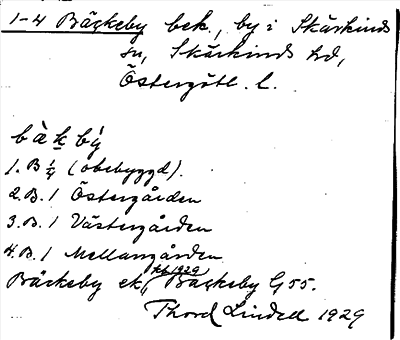 1-4 Bäckeby bek., by i Skärkinds
sn, Skärkinds hd,
Östergötl. l.
bàk bý
1. B 1/4 (obebyggd).
2. B. 1 Östergården
3. B. 1 Västergården
4. B. 1 Mellangården
Bäckeby ek, Bäckeby G 55.
Thord Lindell 1929